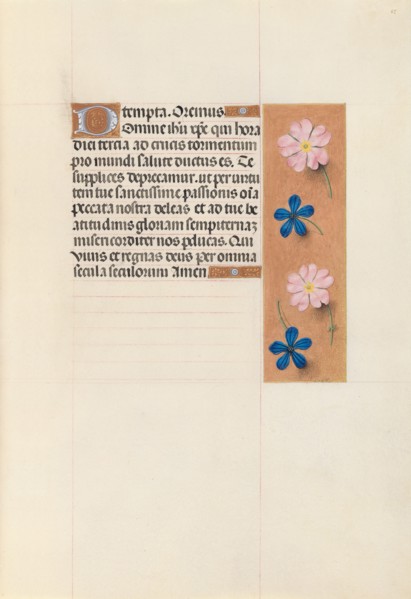 tempta. Oremus
Domine ihu xpe qui hora
diei tercia ad crucis tormentum
pro mundi salute ductus es. Te
supplices deprecamur. ut per virtu
tem tue sanctissime passionis oia
peccata nostra deleas et ad tue be
atitudinis gloriam sempiternaz
misericorditer nos perducas. Qui
vivis et regnas deus per omnia
secula seculorum Amen